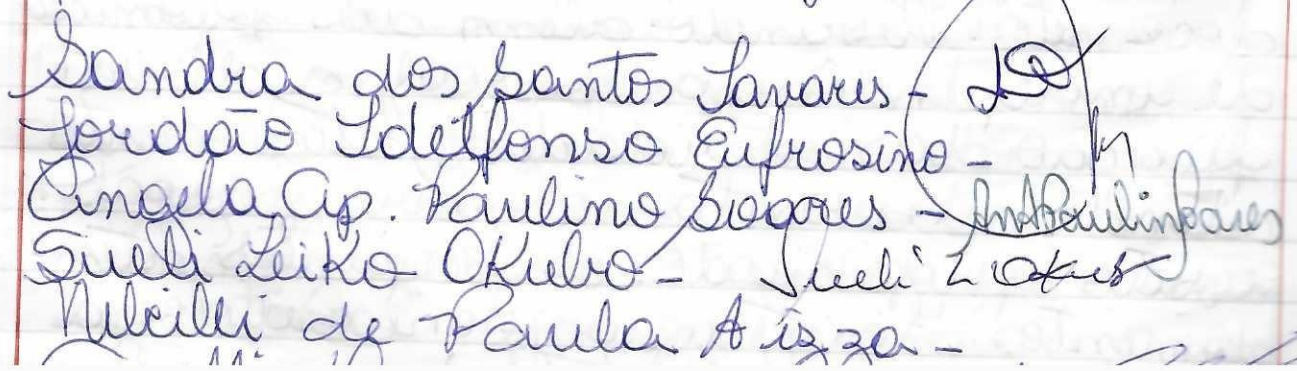 Sandra dos Santos Tavares -
Jordão Idelfonso Eufrosino -
Angela Ap. Paulino Soares - AnAPaulinSoares
Sueli Leiko Okubo - Sueli L Okubo
de Paula Aizza -